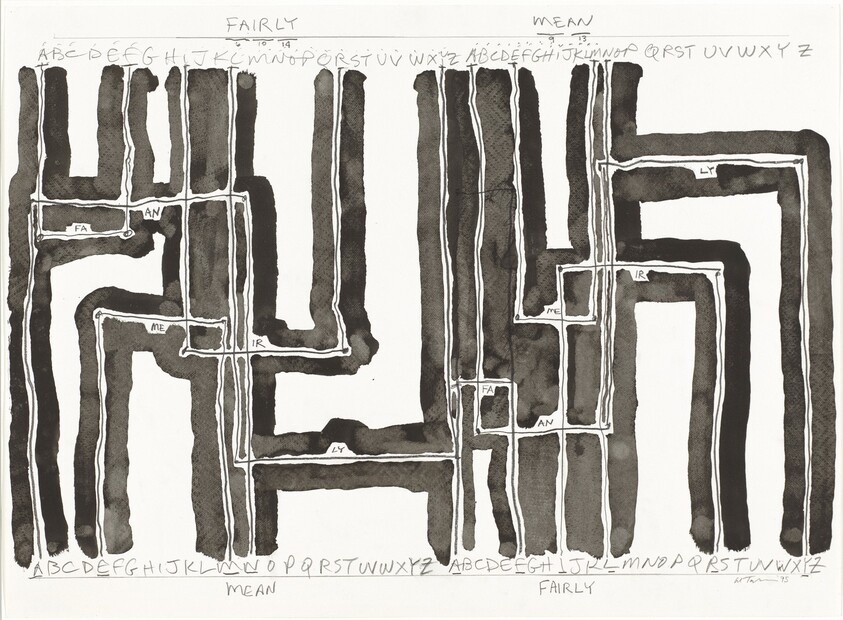 FAIRLY MEAN
10 14 9 13
ABCDEFGHIJKLMNOPQRSTUVWXYZ ABCDEFGHIJKLMNOPQRSTUVWXYZ
LY
AN
FA
IR
ME
ME
IR
FA
AN
LY
ABCDEFGHIJKLMNOPQRSTUVWXYZ ABCDEFGHIJKLMNOPQRSTUVWXYZ
MEAN FAIRLY